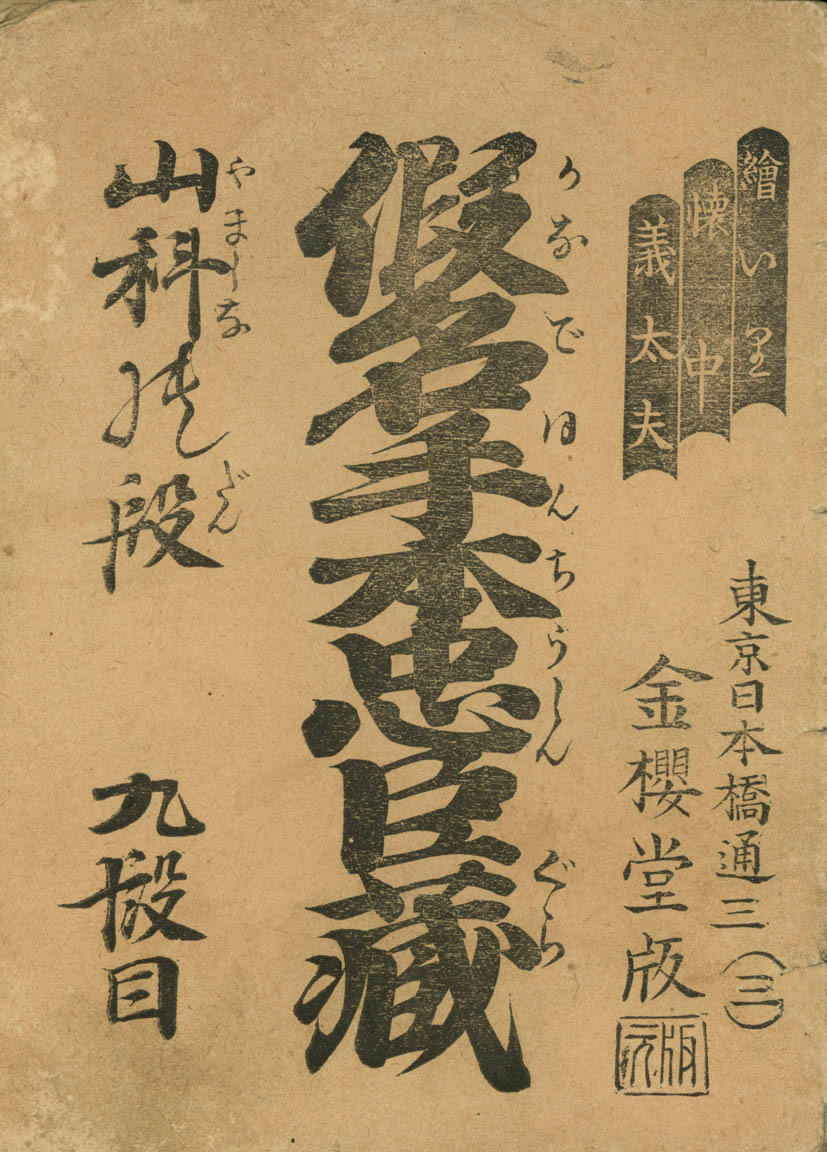 繪いり
懐中
義太夫
東京日本橋通三(三)
金櫻堂版
版元
かなでほんちうしんぐら
假名手本忠臣藏
やましな だん
山科の段
九段目